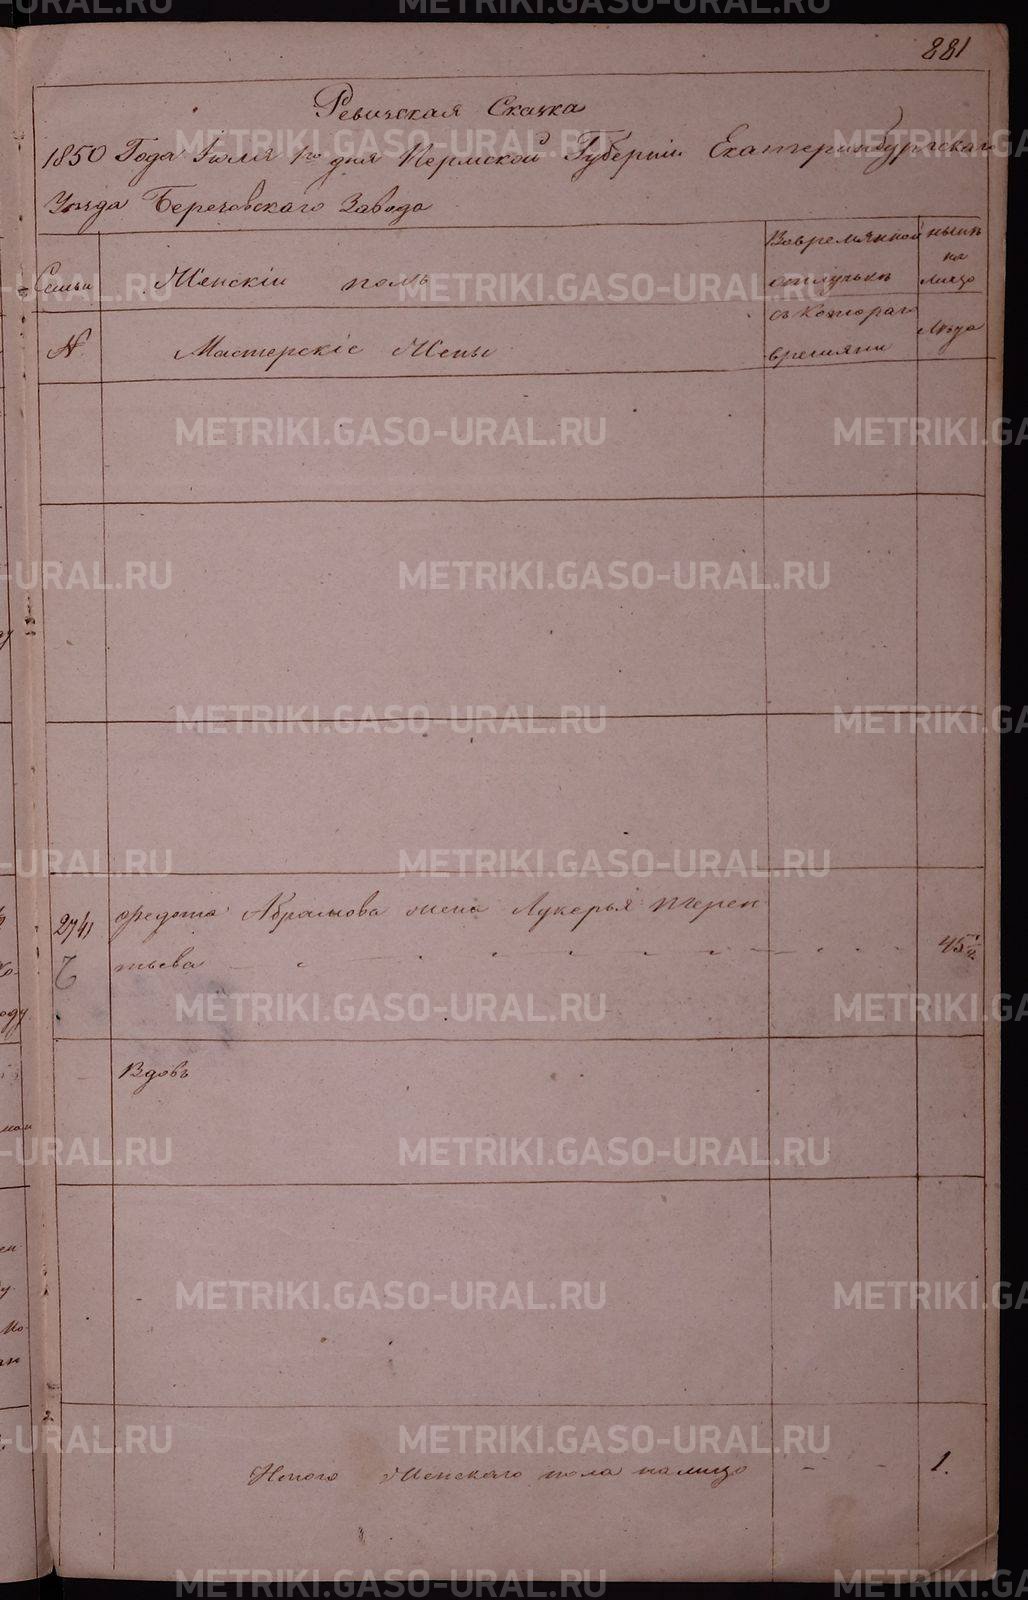 881
Ревизская Сказка
1850 Года Июля 1го дня Пермской Губернiи Екатеринбургскаго
Уѣзда Березовскаго Завода
Семьи
Женскiй полъ
Вовремянной
отлучькѣ
нынѣ
на
лицо
№
Мастерскiе Жены
съ котораго
времяни
Лѣта
2741 Федота Абрамова жена Лукерья Терен
тьева
45 1/2
Вдовъ
Итого Женскаго пола налицо 1.
METRIKI.GASO-URAL.RU